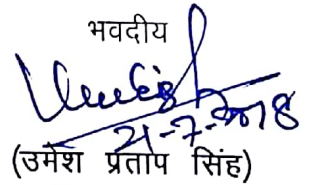 भवदीय
Umesh
21-7-2018
(उमेश प्रताप सिंह)